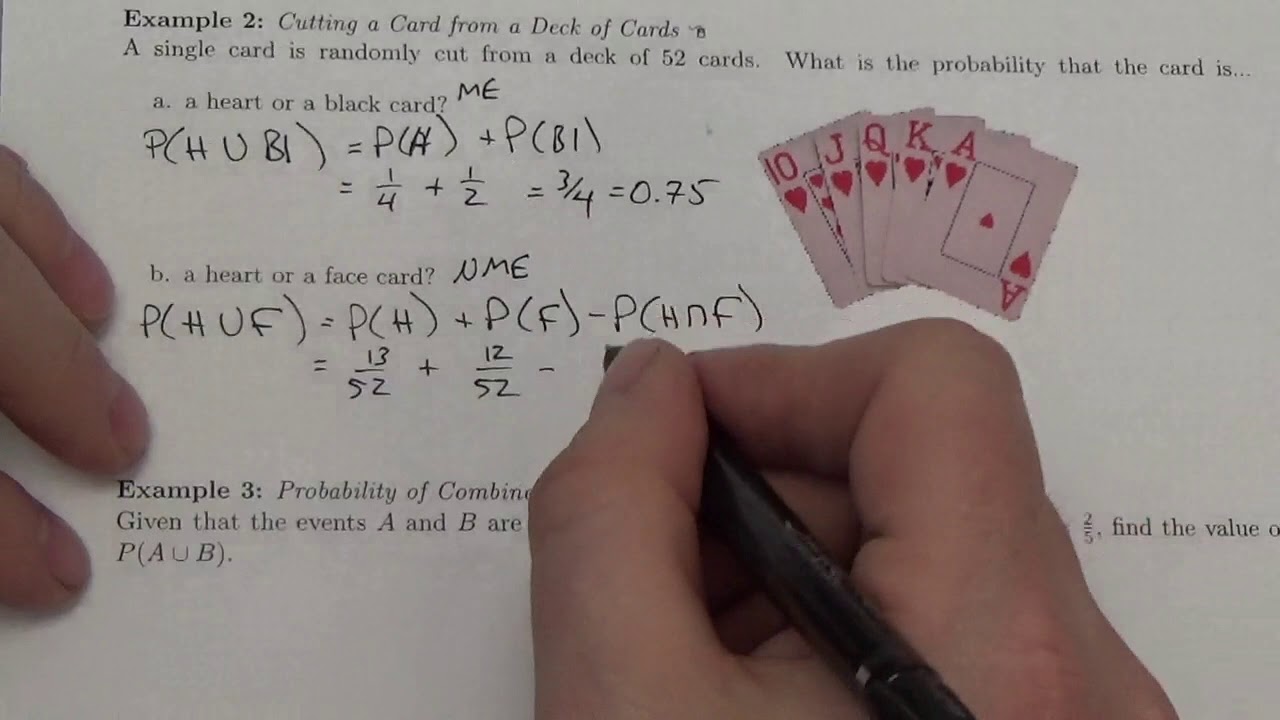 Example 2: Cutting a Card from a Deck of Cards
A single card is randomly cut from a deck of 52 cards. What is the probability that the card is...
a. a heart or a black card? ME
P(H ∪ Bl) = P(H) + P(Bl)
= 1/4 + 1/2 = 3/4 = 0.75
10 J Q K A
A
b. a heart or a face card? NME
P(H ∪ F) = P(H) + P(F) - P(H ∩ F)
= 13/52 + 12/52 -
Example 3: Probability of
Given that the events A and B are 2/5, find the value
P(A ∪ B).